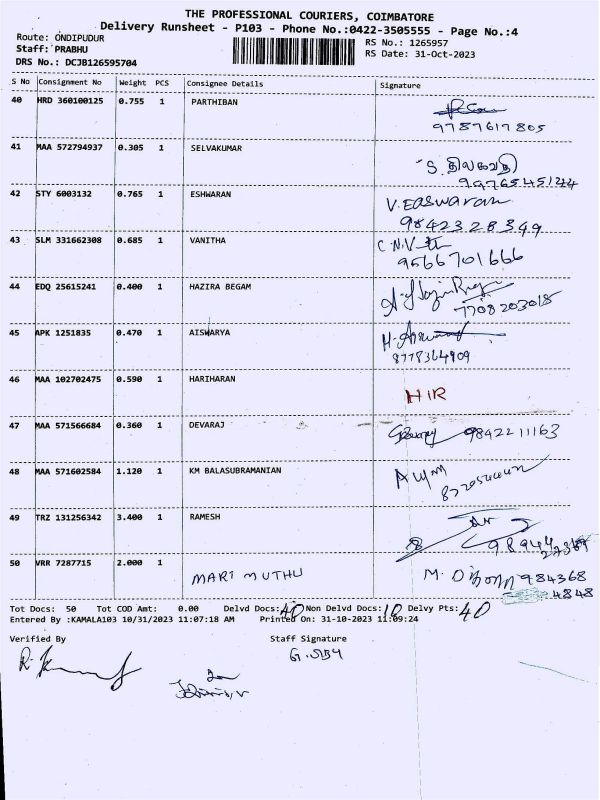 THE PROFESSIONAL COURIERS, COIMBATORE
Delivery Runsheet - P103 - Phone No.:0422-3505555 - Page No.:4
Route: ONDIPUDUR
RS No.: 1265957
Staff: PRABHU
RS Date: 31-Oct-2023
DRS No.: DCJB126595704
S No Consignment No Weight PCS Consignee Details Signature
40 HRD 360100125 0.755 1 PARTHIBAN
9789617805
41 MAA 572794937 0.305 1 SELVAKUMAR
S. திலகவதி
9976545124
42 STY 6003132 0.765 1 ESHWARAN V. Easwaran
9842328349
43 SLM 331662308 0.685 1 VANITHA
9566701666
44 EDQ 25615241 0.400 1 HAZIRA BEGAM
7708203018
45 APK 1251835 0.470 1 AISWARYA
8778364909
46 MAA 102702475 0.590 1 HARIHARAN
HIR
47 MAA 571566684 0.360 1 DEVARAJ
9842211163
48 MAA 571602584 1.120 1 KM BALASUBRAMANIAN
49 TRZ 131256342 3.400 1 RAMESH
50 VRR 7287715 2.000 1
MARI MUTHU
984368
4848
Tot Docs: 50 Tot COD Amt: 0.00 Delvd Docs: 40 Non Delvd Docs: 10 Delvy Pts: 40
Entered By :KAMALA103 10/31/2023 11:07:18 AM Printed On: 31-10-2023 11:09:24
Verified By Staff Signature